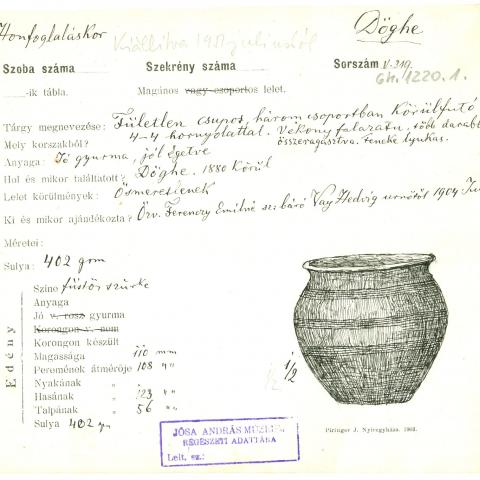 Honfoglaláskor
Kiállítva 1951 juliustól
Döghe
Szoba száma
Szekrény száma
Sorszám V-319.
Gh. 1220. 1.
-ik tábla.
Magános vagy csoportos lelet.
Tárgy megnevezése: Fületlen csupor, három csoportban körülfutó
Mely korszakból? 4-4 hornyolattal. Vékony falazatu, több darabb
összeragasztva. Feneke lyukas.
Anyaga: Jó gyurma, jól égetve
Hol és mikor találtatott? Döghe. 1880 körül
Lelet körülmények: Ösmeretlenek
Ki és mikor ajándékozta? Özv. Ferenczy Emilné sz: báró Vay Hedvig urnőtől 1904
Méretei:
Sulya: 402 grm
Edény
Szine füstös szürke
Anyaga
Jó v. rosz gyurma
Korongon v. nem
Korongon készült
Magassága 110 mm
Peremének átmérője 108 "
Nyakának "
Hasának " 123 "
Talpának " 56 "
Sulya 402 gr
1/2
1/2
Piringer J. Nyiregyháza.
JÓSA ANDRÁS MÚZEUM
RÉGÉSZETI ADATTÁRA
Lelt. sz.: